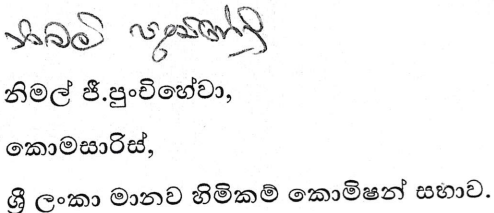 නිමල් ජී.පුංචිහේවා,
කොමසාරිස්,
ශ්‍රී ලංකා මානව හිමිකම් කොමිෂන් සභාව.